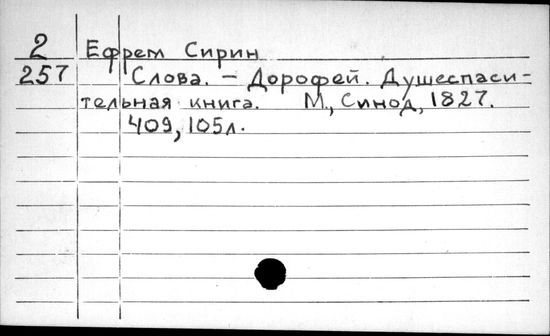 2 Ефрем Сирин
257 Слова. – Дорофей. Душеспаси-
тельная книга. М., Синод, 1827.
409, 105л.